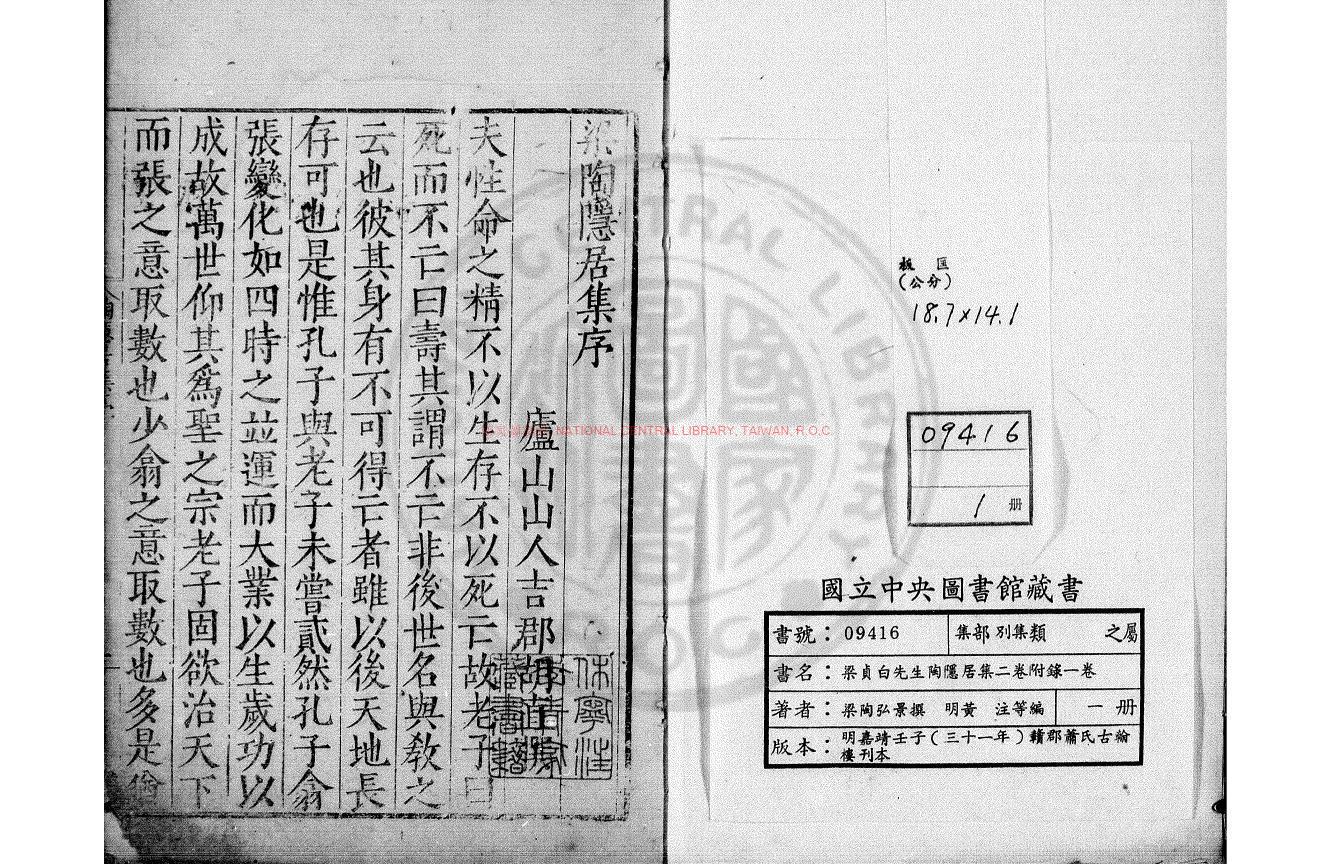 梁陶隱居集序
廬山山人吉郡胡直撰
夫性命之精不以生存不以死亡故老子曰
死而不亡曰壽其謂不亡非後世名與教之
云也彼其身有不可得亡者雖以後天地長
存可也是惟孔子與老子未嘗貳然孔子翕
張變化如四時之並運而大業以生歲功以
成故萬世仰其爲聖之宗老子固欲治天下
而張之意取數也少翕之意取數也多是猶
NATIONAL CENTRAL LIBRARY, TAIWAN, R.O.C.
板匡
(公分)
18.7×14.1
09416
1 册
國立中央圖書館藏書
書號：09416 集部 別集類 之屬
書名：梁貞白先生陶隱居集二卷附錄一卷
著者：梁陶弘景撰 明黃 注等編 一 册
版本：明嘉靖壬子(三十一年)贛郡蕭氏古翰
樓刊本